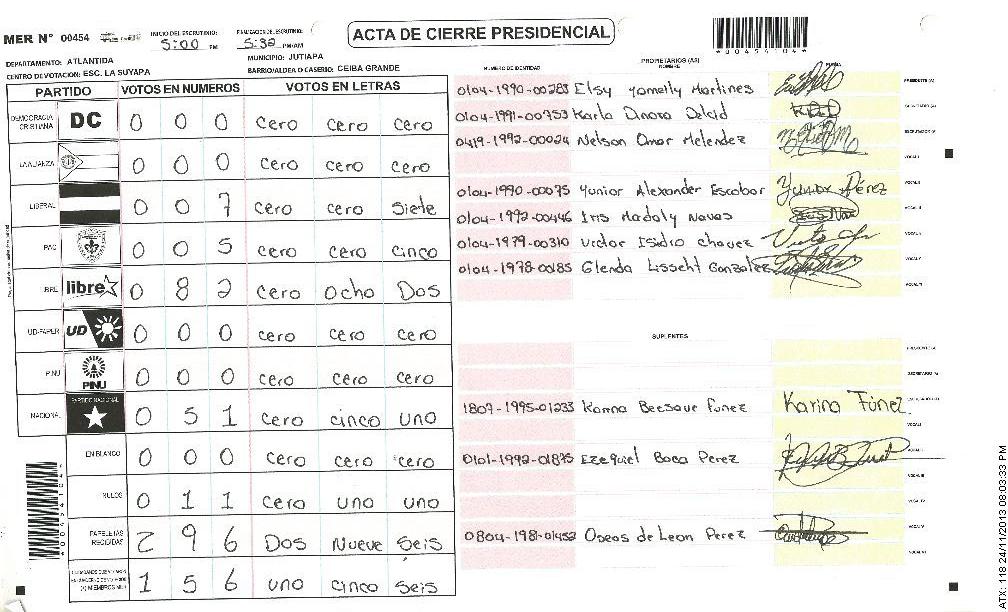 MER N° 00454
INICIO DEL ESCRUTINIO: 5:00 PM
FINALIZACION DE ESCRUTINIO: 5:32 PM/AM
ACTA DE CIERRE PRESIDENCIAL
*00454104*
DEPARTAMENTO: ATLANTIDA
MUNICIPIO: JUTIAPA
CENTRO DE VOTACION: ESC. LA SUYAPA
BARRIO/ALDEA O CASERIO: CEIBA GRANDE
PARTIDO VOTOS EN NUMEROS VOTOS EN LETRAS
DEMOCRACIA CRISTIANA DC 0 0 0 cero cero cero
LA ALIANZA 0 0 0 cero cero cero
LIBERAL 0 0 7 cero cero siete
PAC 0 0 5 cero cero cinco
LIBRE libre 0 8 2 cero ocho Dos
UD-FAPER UD 0 0 0 cero cero cero
PINU PINU 0 0 0 cero cero cero
NACIONAL PARTIDO NACIONAL 0 5 1 cero cinco uno
EN BLANCO 0 0 0 cero cero cero
NULOS 0 1 1 cero uno uno
PAPELETAS RECIBIDAS 2 9 6 Dos Nueve seis
1 5 6 uno cinco seis
NUMERO DE IDENTIDAD PROPIETARIOS (AS) NOMBRE FIRMA
0104-1990-00283 Elsy yomelly Martines PRESIDENTE (A)
0104-1991-00753 Karla Dinora Delcid SECRETARIO (A)
0419-1992-00024 Nelson Omar Melendez ESCRUTADOR (A)
VOCAL I
0104-1990-00075 Yunior Alexander Escobar Yunior Pérez VOCAL II
0104-1992-00446 Iris Madaly Navas VOCAL III
0104-1979-00310 Victor Isidro chavez VOCAL IV
0104-1978-00185 Glenda Lisseht Gonzales VOCAL V
VOCAL VI
SUPLENTES
PRESIDENTE (A)
SECRETARIO (A)
1807-1995-01233 Karina Funez Karina Fúnez ESCRUTADOR (A)
VOCAL I
0101-1992-01875 Ezequiel Boca Perez VOCAL II
VOCAL III
VOCAL IV
0804-198-01452 de Leon Perez VOCAL V
VOCAL VI
*00454104*
ATX: 118 24/11/2013 08:03:33 PM